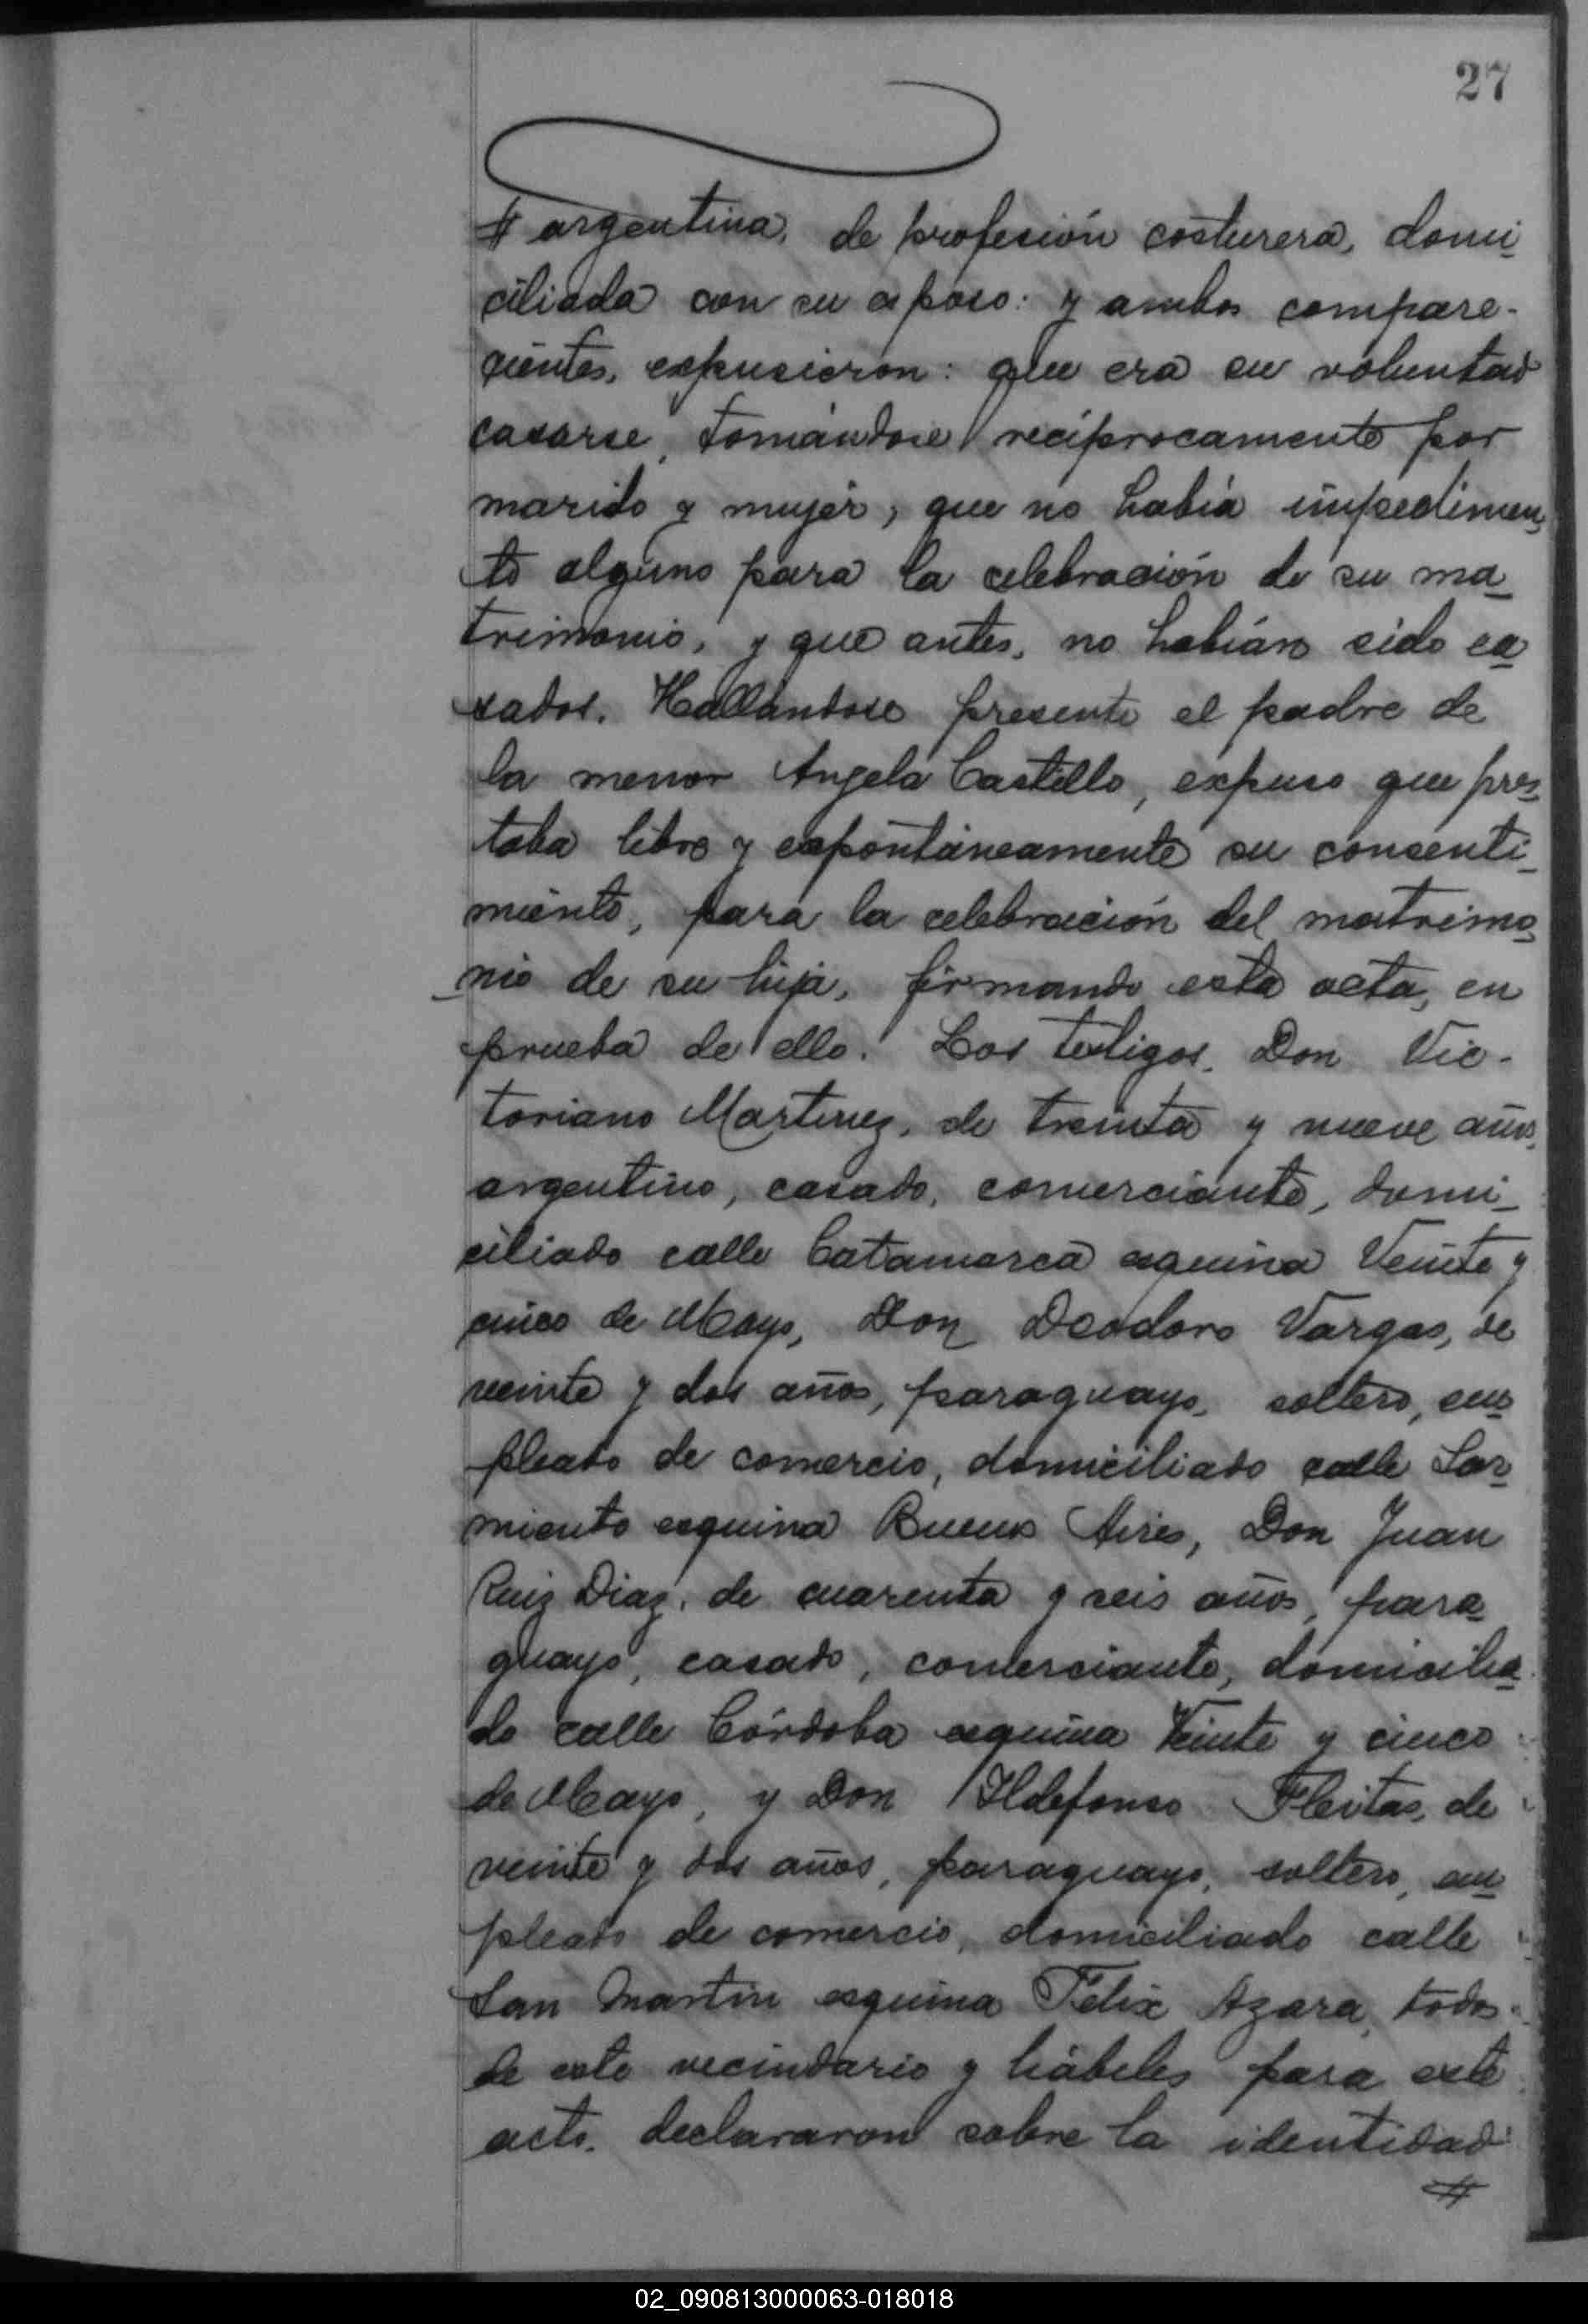 27
# argentina, de profesión costurera, domi-
ciliada con su esposo: y ambos compare-
cientes, expusieron: que era su voluntad
casarse, tomándose recíprocamente por
marido y mujer, que no había impedimen-
to alguno para la celebración de su ma-
trimonio, y que antes, no habían sido ca-
sados. Hallandose presente el padre de
la menor Angela Castillo, expuso que pres-
taba libre y espontáneamente su consenti-
miento, para la celebración del matrimo-
nio de su hija, firmando esta acta, en
prueba de ello. Los testigos, Don Vic-
toriano Martinez, de treinta y nueve años,
argentino, casado, comerciante, domi-
ciliado calle Catamarca esquina Veinte y
cinco de Mayo, Don Deodoro Vargas, de
veinte y dos años, paraguayo, soltero, em-
pleado de comercio, domiciliado calle Sar-
miento esquina Buenos Aires, Don Juan
Ruiz Diaz, de cuarenta y seis años, para-
guayo, casado, comerciante, domicilia-
do calle Córdoba esquina Veinte y cinco
de Mayo, y Don Ildefonso Fleitas, de
veinte y dos años, paraguayo, soltero, em-
pleado de comercio, domiciliado calle
San Martin esquina Felix Azara, todos
de este vecindario y hábiles para este
acto, declararon sobre la identidad
#
02_090813000063-018018